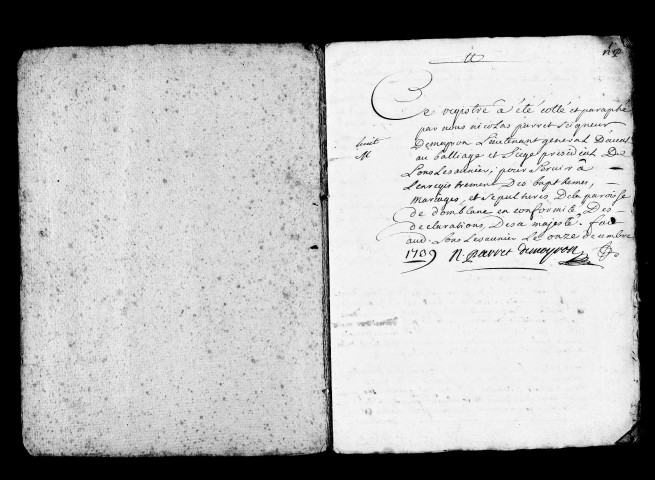 Ce registre a été cotté et paraphé
par nous nicolas parret Seigneur
Demoyron Lieutenant general
au balliage et Siege presidial De
Lons Lesaunier, pour servir à
Lenregistrement Des baptemes,
Mariages, et Sepultures, Dela paroisse
de domblans en conformité Des
declarations Desa majesté. fait
aud. Lons Lesaunier Le onze decembre
1739 N. parret demoyron